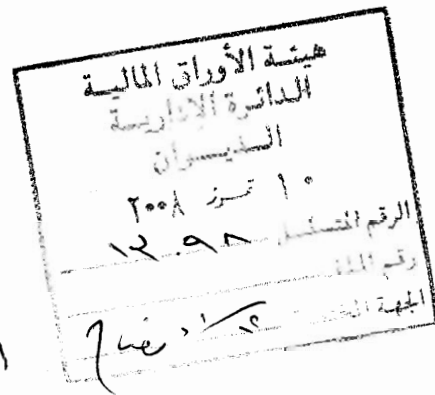 هيئة الأوراق المالية
الدائرة الإدارية
الديوان
١٠ تموز ٢٠٠٨
الرقم المتسلسل ١٢٠٩٨
رقم الملف
الجهة المختصة